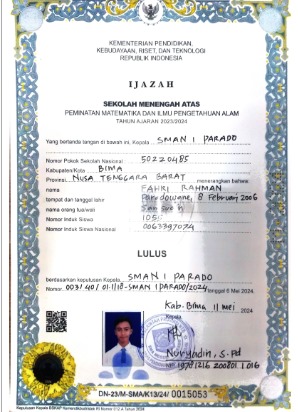 KEMENTERIAN PENDIDIKAN,
KEBUDAYAAN, RISET, DAN TEKNOLOGI
REPUBLIK INDONESIA
IJAZAH
SEKOLAH MENENGAH ATAS
PEMINATAN MATEMATIKA DAN ILMU PENGETAHUAN ALAM
TAHUN AJARAN 2023/2024
Yang bertanda tangan di bawah ini, Kepala SMAN 1 PARADO
Nomor Pokok Sekolah Nasional 50220485
Kabupaten/Kota BIMA
Provinsi NUSA TENGGARA BARAT menerangkan bahwa:
nama FAHRI RAHMAN
tempat dan tanggal lahir 8 Februari 2006
nama orang tua/wali
Nomor Induk Siswa 1051
Nomor Induk Siswa Nasional 0063397074
LULUS
berdasarkan keputusan Kepala SMAN 1 PARADO
Nomor 003.140/01.1/18-SMAN 1 PARADO/2024 tanggal 6 Mei 2024.
Kab. Bima, 11 Mei 2024
Kepala
Nuryadin, S.Pd
NIP 19781216 200801 1 016
DN-23/M-SMA/K13/24/0015053